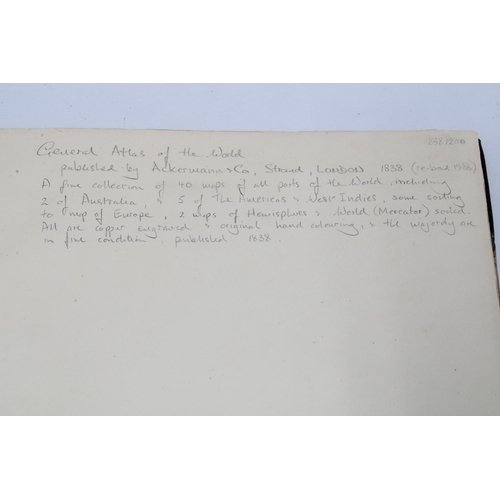 General Atlas of the World
published by Ackermann & Co, Strand, LONDON 1838 (re-bound
A fine collection of 40 maps of all parts of the World, including
2 of Australia, & 5 of The Americas & West Indies, some soiling
to map of Europe, 2 maps of Hemispheres & World (Mercator) soiled.
All are copper engraved & original hand colouring, & the majority are
in fine condition. published 1838.